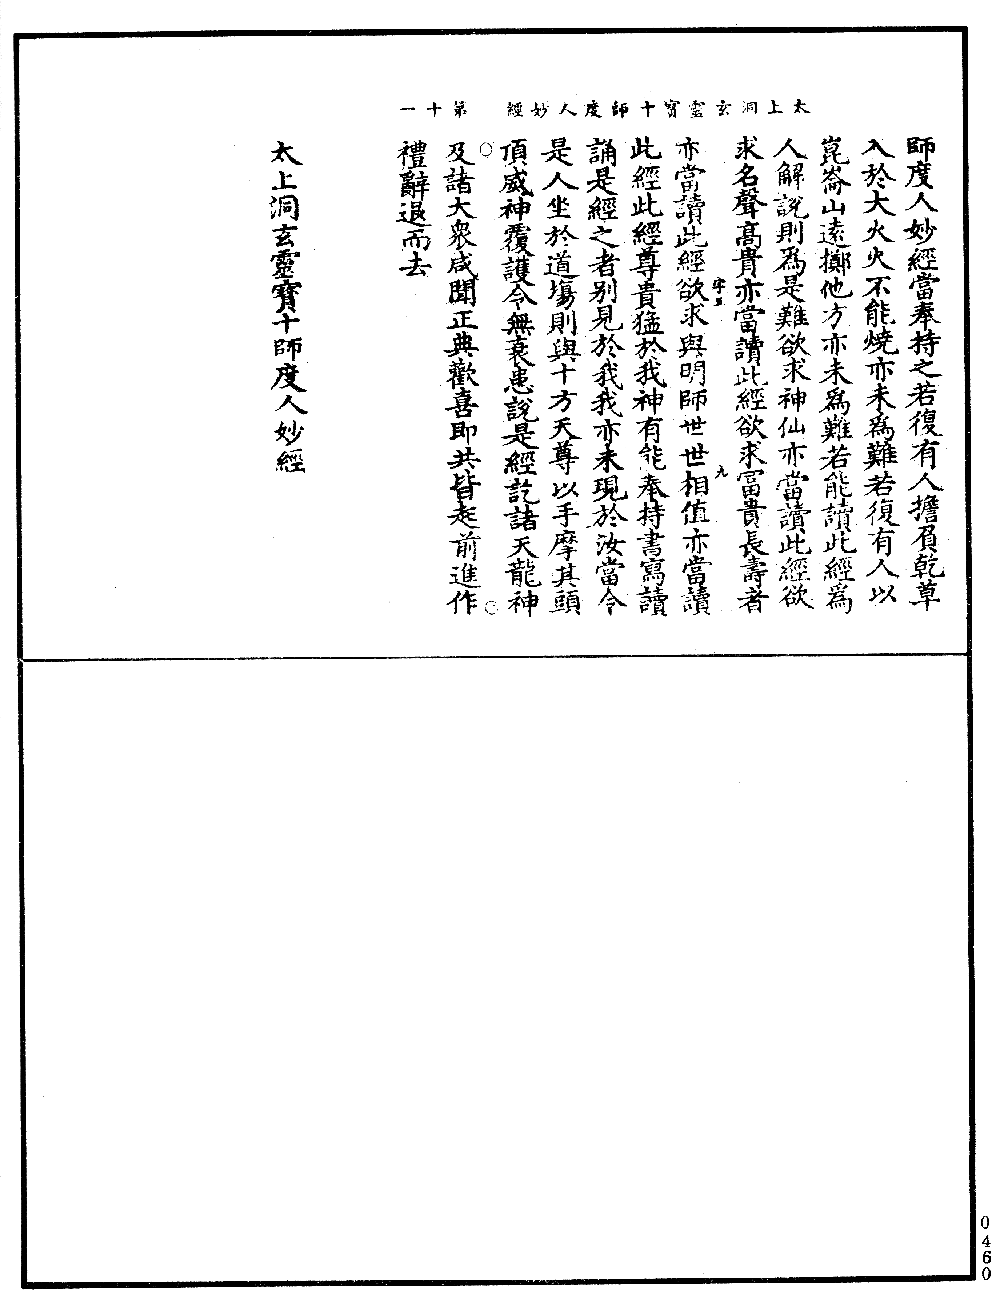 太上洞玄靈寶十師度人妙經 第十一
師度人妙經當奉持之若復有人擔負乾草
入於大火火不能燒亦未為難若復有人以
崑崙山遠擲他方亦未為難若能讀此經為
人解說則為是難欲求神仙亦當讀此經欲
求名聲高貴亦當讀此經欲求富貴長壽者
九
亦當讀此經欲求與明師世世相值亦當讀
此經此經尊貴猛於我神有能奉持書寫讀
誦是經之者別見於我我亦未現於汝當令
是人坐於道場則與十方天尊以手摩其頭
頂威神覆護令無衰患說是經訖諸天龍神
及諸大眾咸聞正典歡喜即共皆起前進作
禮辭退而去
太上洞玄靈寶十師度人妙經
0460